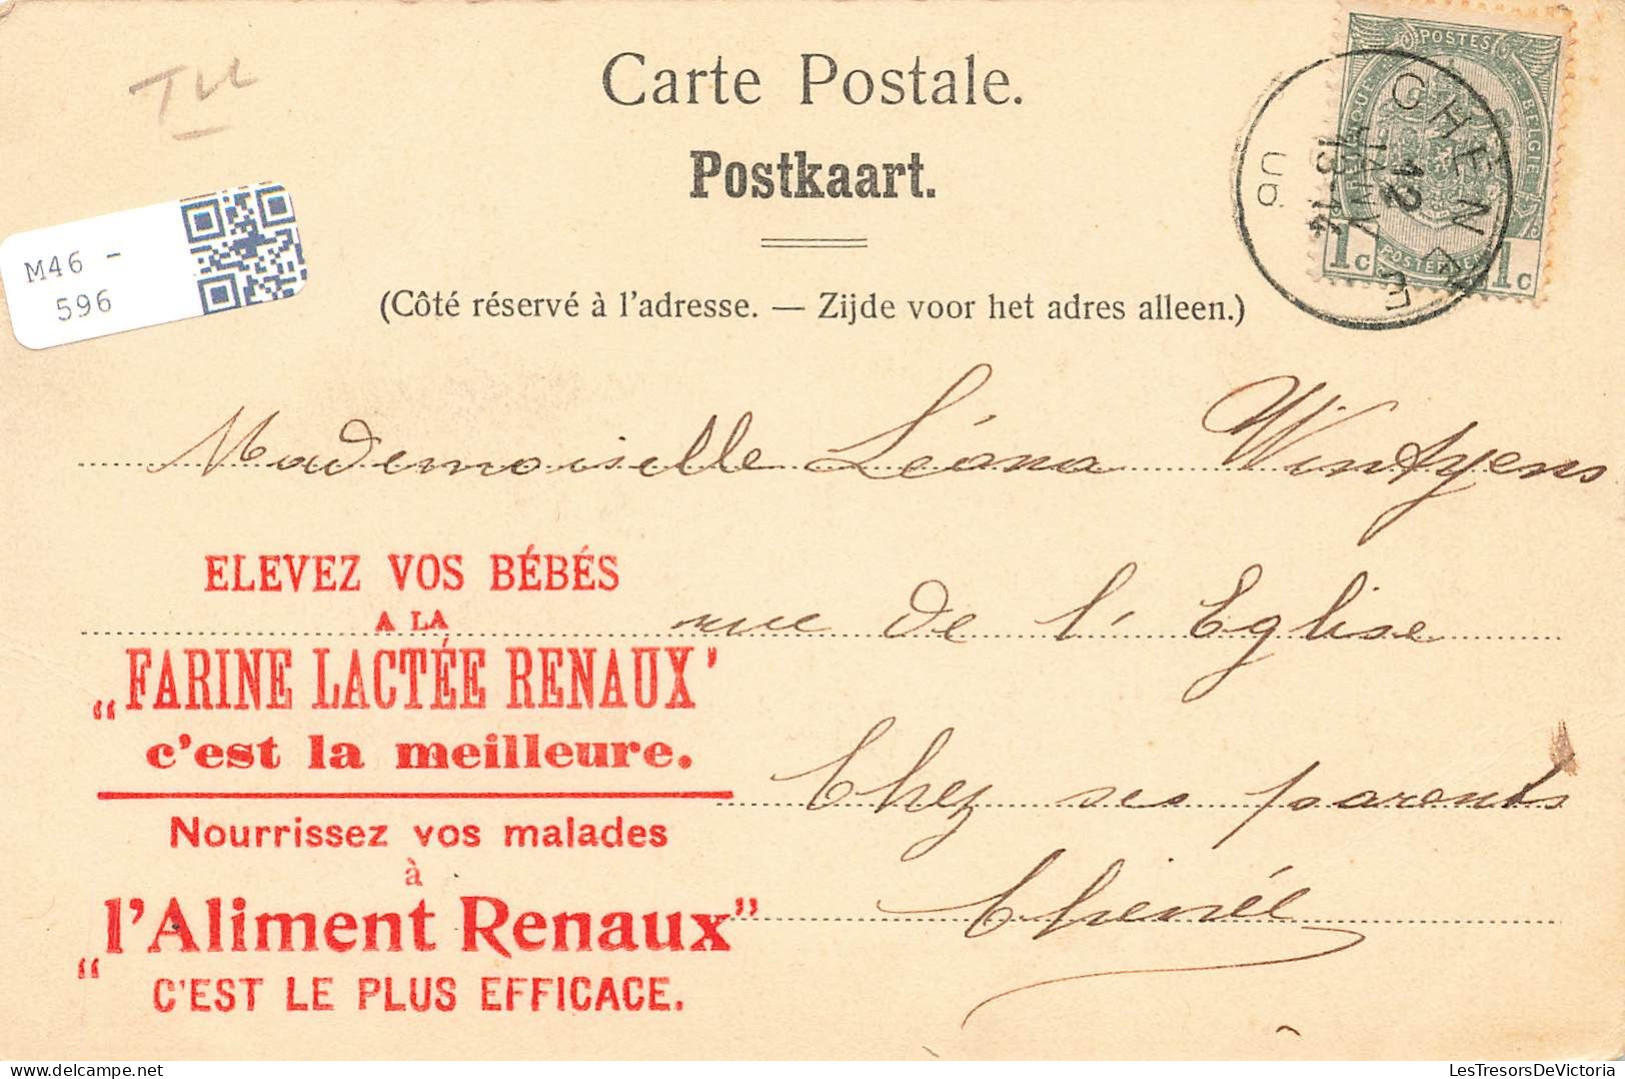 Carte Postale.
Postkaart.
(Côté réservé à l'adresse. — Zijde voor het adres alleen.)
M46 -
596
POSTES
BELGIQUE
BELGIË
POSTERIJEN
1c 1c
CHÊNÉE
12
JANV
13-14
Mademoiselle Léona Wintgens
rue de l'Eglise
Chez ses parents
Chênée
ELEVEZ VOS BÉBÉS
A LA
„FARINE LACTÉE RENAUX'
c'est la meilleure.
Nourrissez vos malades
à
„l'Aliment Renaux”
C'EST LE PLUS EFFICACE.
LesTresorsDeVictoria